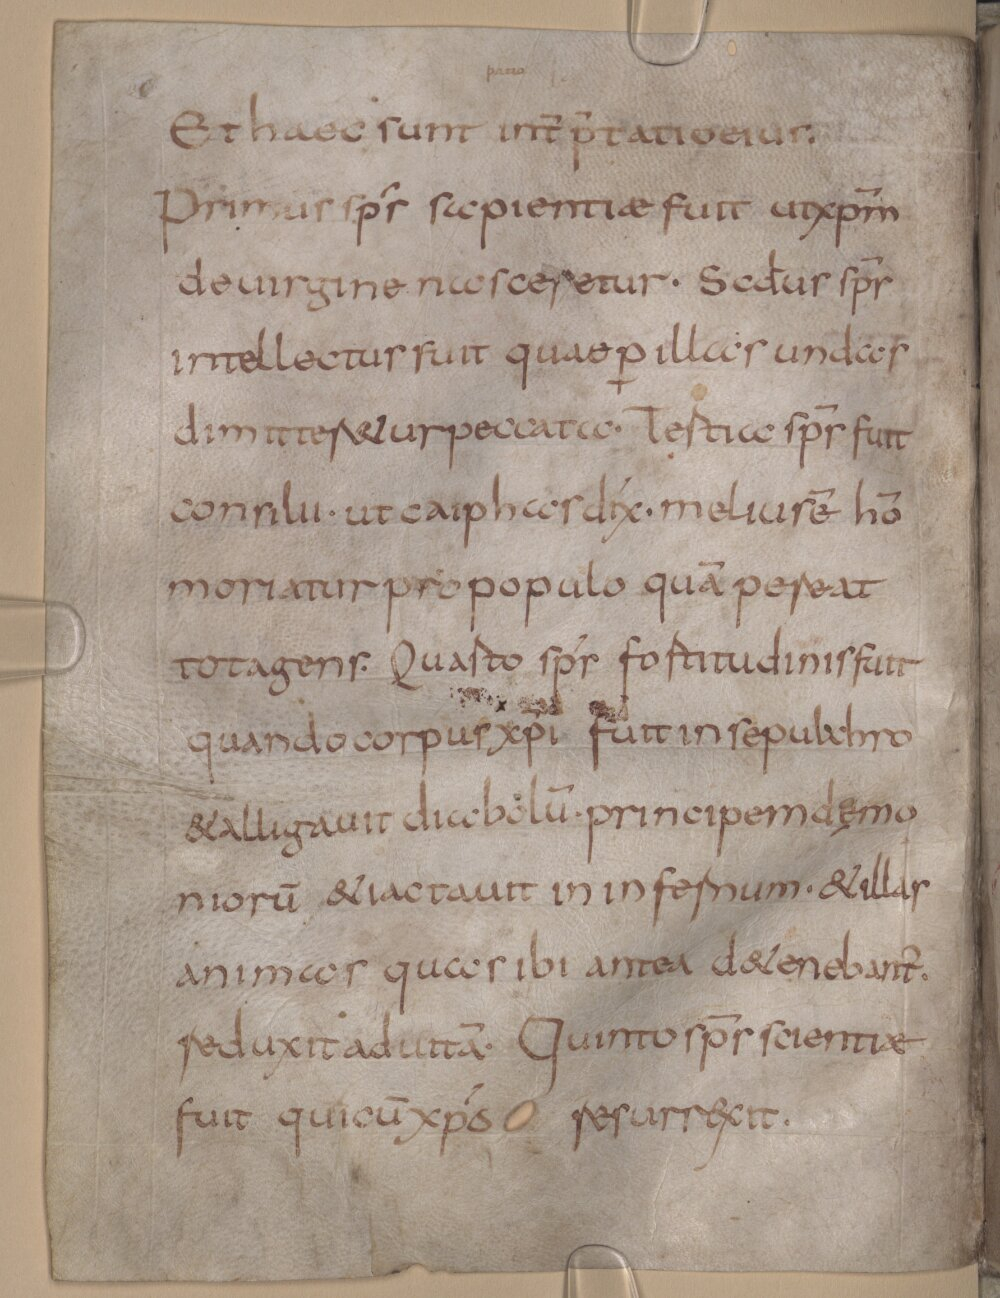 Et haec sunt int̄ p̄tatio eius.
Primus sp̄s sapientiae fuit ut xp̄m
de uirgine nasceretur· Scd̄us sp̄s
intellectus fuit quae ꝑ illas undas
dimitteretur peccata· Tertia sp̄s fuit
consilii· ut caiphas dix̄· melius ē hō
moriatur pro populo quā pereat
tota gens. Quarto sp̄s fortitudinis fuit
quando corpus xp̄i fuit in sepulchro
&alligauit diabolū· principem demo
niorū &iactauit in infernum· &illas
animas quas ibi antea d&enebant̄.
reduxit ad uitā· Quinto sp̄s scientiae
fuit qui cū xp̄s resurrexit.